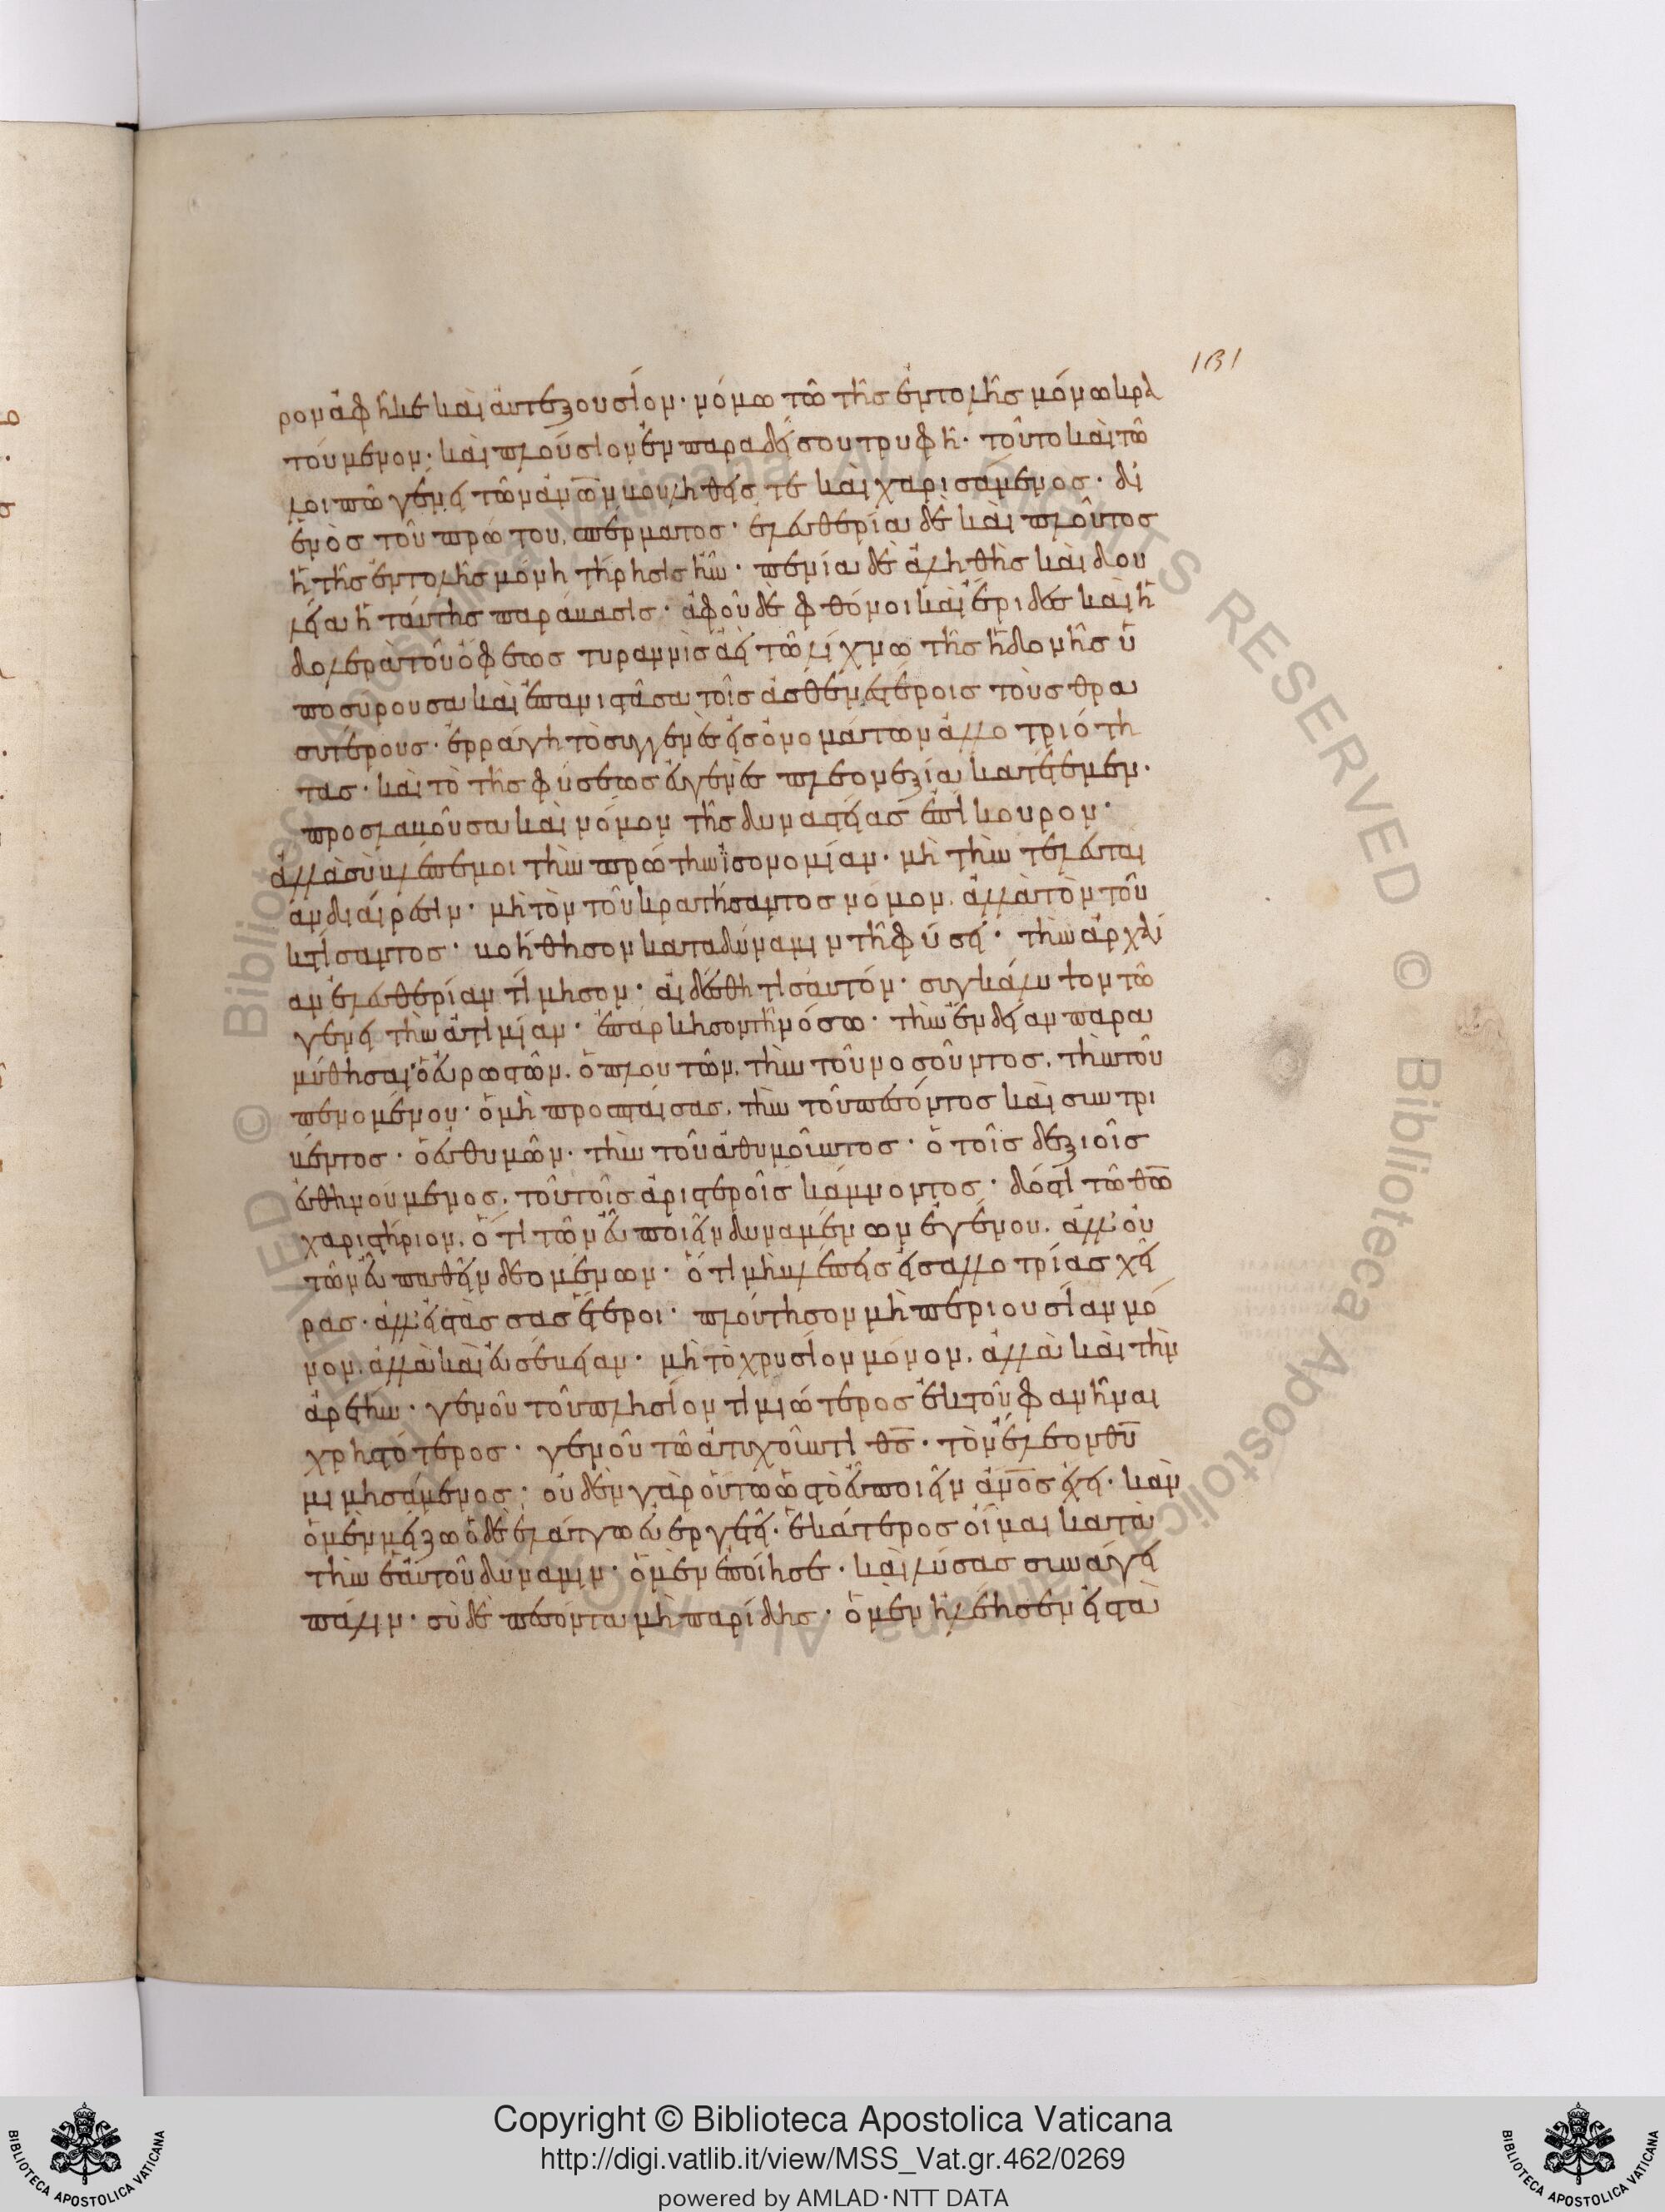 131
ρον ἀφῆκε καὶ αὐτεξούσιον· μόνω τῶ τῆς ἐντολῆς νόμω κρα
τούμενον· καὶ πλούσιον ἐν παραδείσου τρυφῆ· τοῦτο καὶ τῶ
λοιπῶ γένει τῶν ἀν̅ω̅ν βουληθείς τε καὶ χαρισάμενος· δι'
ἑνὸς τοῦ πρώτου σπέρματος· ἐλευθερία δὲ καὶ πλοῦτος
ἡ τῆς ἐντολῆς μόνη τήρησις ἦν· πενία δὲ ἀληθὴς καὶ δου
λεία ἡ ταύτης παράβασις· ἀφοῦ δὲ φθόνοι καὶ ἔριδες καὶ ἡ
δολερὰ τοῦ ὄφεως τυραννὶς ἀεὶ τῶ λίχνω τῆς ἡδονῆς ὑ
ποσύρουσα καὶ ἐπανιστᾶσα τοῖς ἀσθενεστέροις τοὺς θρα
συτέρους· ἐρράγη τὸ συγγενὲς εἰς ὀνομάτων ἀλλοτριότη
τας· καὶ τὸ τῆς φύσεως εὐγενὲς πλεονεξία κατέτεμεν·
προσλαβοῦσα καὶ νόμον τῆς δυναστείας ἐπίκουρον·
ἀλλὰ σὺ βλέπε μοι τὴν πρώτην ἰσονομίαν· μὴ τὴν τελευταί
αν διαίρεσιν· μὴ τὸν τοῦ κρατήσαντος νόμον, ἀλλὰ τὸν τοῦ
κτίσαντος· βοήθησον κατὰ δύναμιν τῆ φύσει· τὴν ἀρχαί
αν ἐλευθερίαν τίμησον· αἰδέσθητι σαυτόν· συγκάλυψον τῶ
γένει τὴν ἀτιμίαν· ἐπάρκησον τῆ νόσω· τὴν ἔνδειαν παρα
μύθησαι ὁ εὐρωστῶν, ὁ πλουτῶν, τὴν τοῦ νοσοῦντος, τὴν τοῦ
πενομένου· ὁ μὴ προσπταίσας, τὴν τοῦ πεσόντος καὶ συντρι
βέντος· ὁ εὐθυμῶν· τὴν τοῦ ἀθυμοῦντος· ὁ τοῖς δεξιοῖς
εὐθηνούμενος, τοῦ τοῖς ἀριστεροῖς κάμνοντος· δός τι τῶ θ̅ω̅
χαριστήριον, ὅτι τῶν εὖ ποιεῖν δυναμένων ἐγένου, ἀλλ' οὐ
τῶν εὖ παθεῖν δεομένων· ὅτι μὴ βλέπεις εἰς ἀλλοτρίας χεῖ
ρας· ἀλλ' εἰς τὰς σὰς ἕτεροι· πλούτησον μὴ περιουσίαν μό
νον, ἀλλὰ καὶ εὐσέβειαν· μὴ τὸ χρυσίον μόνον, ἀλλὰ καὶ τὴν
ἀρετήν· γενοῦ τοῦ πλησίον τιμιώτερος ἐκ τοῦ φανῆναι
χρηστότερος· γενοῦ τῶ ἀτυχοῦντι θ̅ς̅· τὸν ἔλεον θ̅υ̅
μιμησάμενος· οὐδὲν γὰρ οὕτως ὡς τὸ εὖ ποιεῖν ἀν̅ο̅ς ἔχει· κἂν
ὁ μὲν μείζω ὁ δὲ ἐλάττω εὐεργετῆ· ἑκάτερος οἶμαι κατὰ
τὴν ἑαυτοῦ δύναμιν· ὁ μὲν ἐποίησε· καὶ λύσας συνάγει
πάλιν· σὺ δὲ πεσόντα μὴ παρίδης· ὁ μὲν ἠλέησεν εἰς τὰ
Copyright © Biblioteca Apostolica Vaticana
http://digi.vatlib.it/view/MSS_Vat.gr.462/0269
powered by AMLAD·NTT DATA